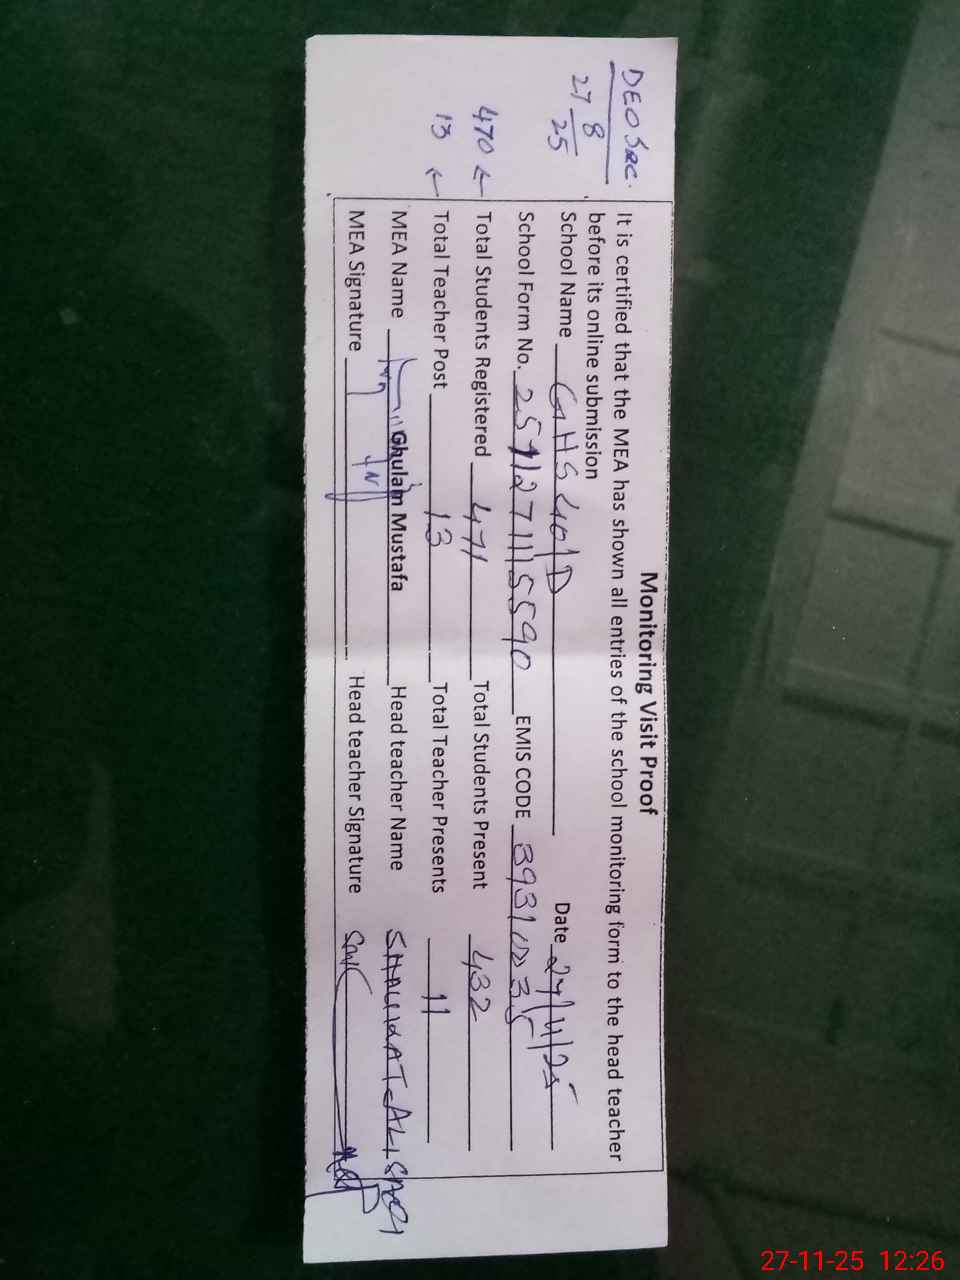 DEO Sec.
27/8/25
470 ←
13 ←
Monitoring Visit Proof
It is certified that the MEA has shown all entries of the school monitoring form to the head teacher
before its online submission
School Name GHS 401D Date 27/11/25
School Form No. 2511271115590 EMIS CODE 39310035
Total Students Registered 471 Total Students Present 432
Total Teacher Post 13 Total Teacher Presents 11
MEA Name Ghulam Mustafa Head teacher Name SHAUKAT ALI
MEA Signature Head teacher Signature
27-11-25 12:26